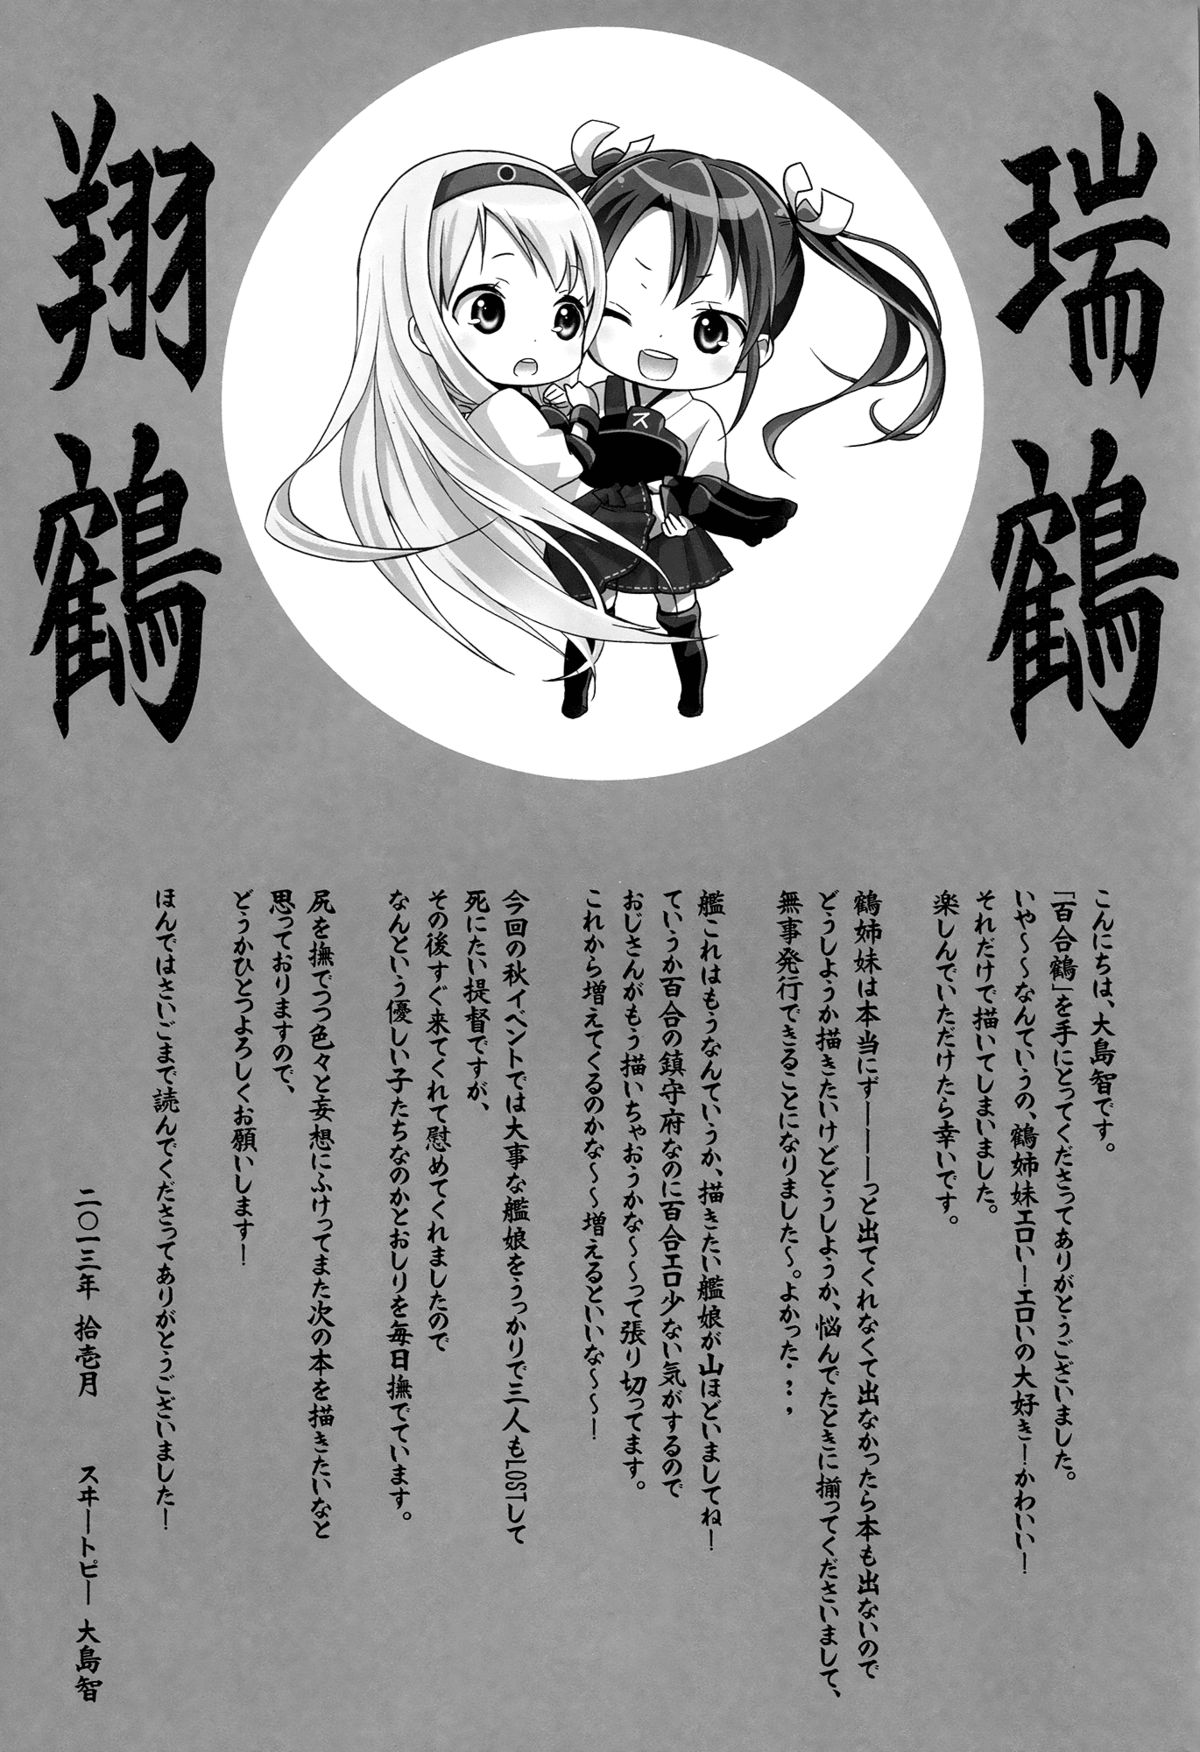 瑞鶴
翔鶴
ス
こんにちは、大島智です。
「百合鶴」を手にとってくださってありがとうございました。
いや～～なんていうの、鶴姉妹エロい！エロいの大好き！かわいい！
それだけで描いてしまいました。
楽しんでいただけたら幸いです。
鶴姉妹は本当にずーーーーっと出てくれなくて出なかったら本も出ないので
どうしようか描きたいけどどうしようか、悩んでたときに揃ってくださいまして、
無事発行できることになりました～。よかった・・，
艦これはもうなんていうか、描きたい艦娘が山ほどいましてね！
ていうか百合の鎮守府なのに百合エロ少ない気がするので
おじさんがもう描いちゃおうかな～～って張り切ってます。
これから増えてくるのかな～～増えるといいな～～！
今回の秋イベントでは大事な艦娘をうっかりで三人もLOSTして
死にたい提督ですが、
その後すぐ来てくれて慰めてくれましたので
なんという優しい子たちなのかとおしりを毎日撫でています。
尻を撫でつつ色々と妄想にふけってまた次の本を描きたいなと
思っておりますので、
どうかひとつよろしくお願いします！
ほんではさいごまで読んでくださってありがとうございました！
二〇一三年 拾壱月 スヰートピー 大島智